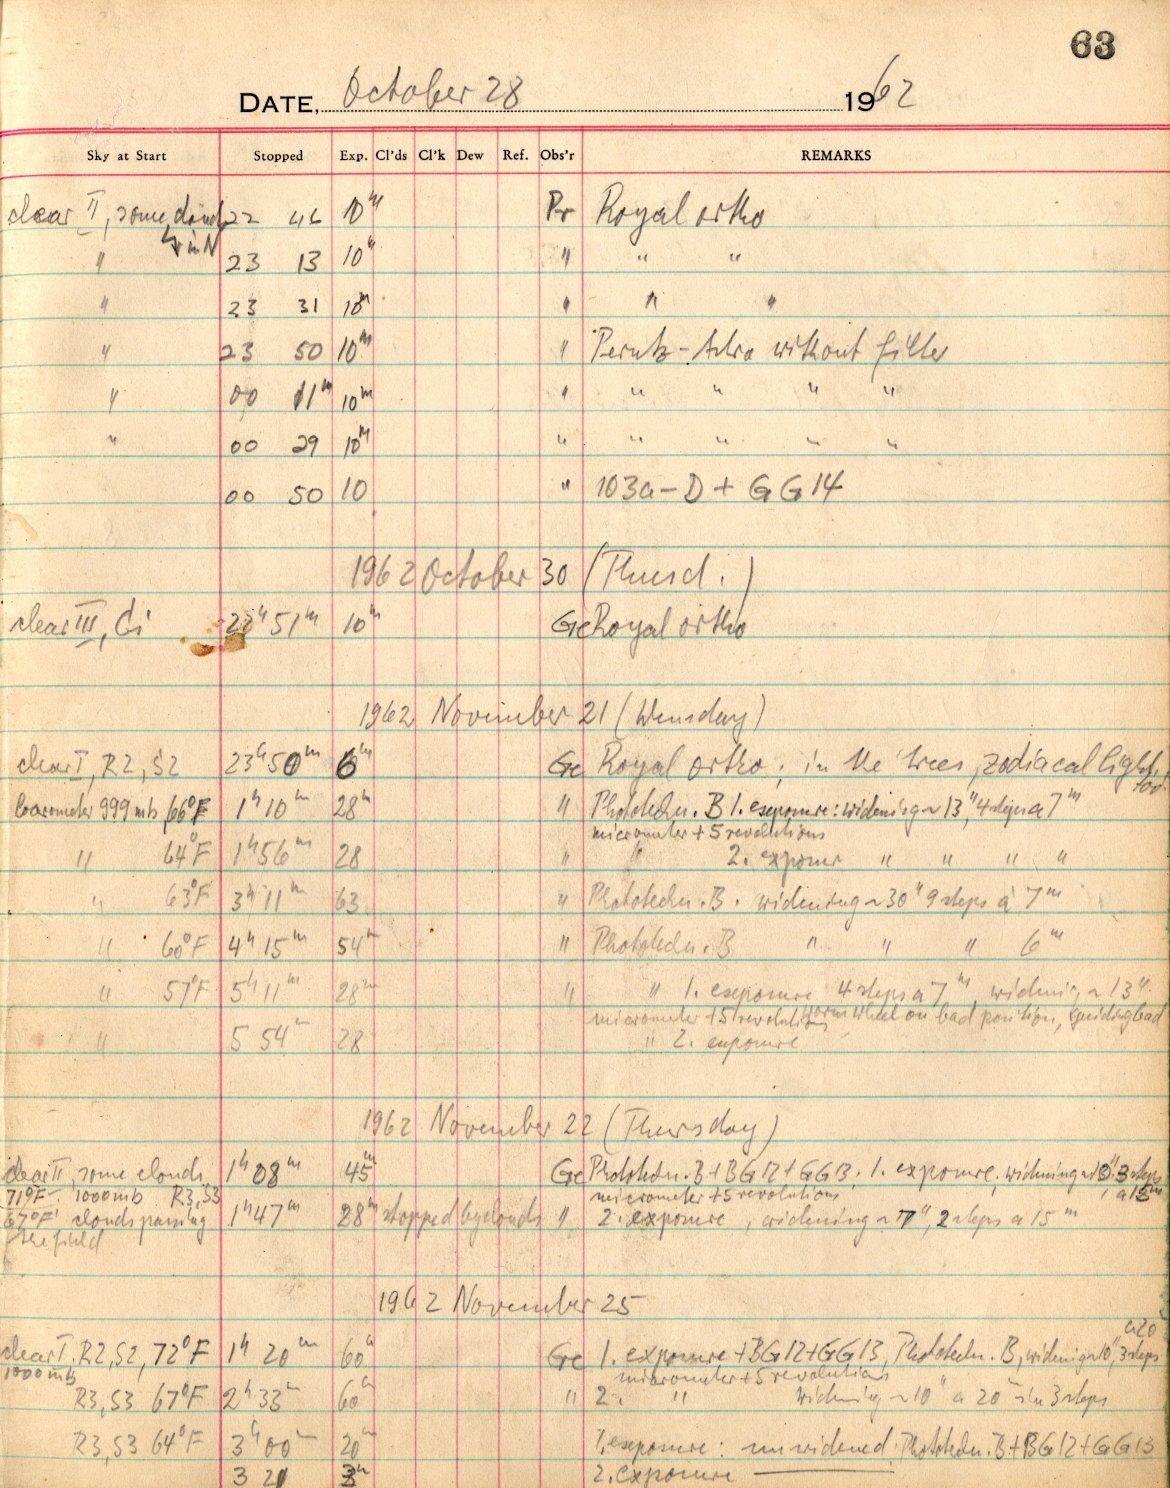 63
DATE, October 28 1962
Sky at Start Stopped Exp. Cl'ds Cl'k Dew Ref. Obs'r REMARKS
clear II, some clouds 22 46 10m Pr Royal ortho
in N
" 23 13 10m " " "
" 23 31 10m " " "
" 23 50 10m " Perutz - Astro without filter
" 00 11m 10m " " " " "
" 00 29 10m " " " " "
00 50 10 " 103a-D + GG14
1962 October 30 (Thursd.)
clear III, Ci 22h 51m 10m Ge Royal ortho
1962 November 21 (Wensday)
clear I, R2, S2 23h 50m 6m Ge Royal ortho; in the trees, zodiacal light,
too.
barometer 999 mb 66°F 1h 10m 28m " Phototechn. B 1. exposure: widening ~ 13", 4 steps a 7m
micrometer + 5 revolutions
" 64°F 1h 56m 28 " " 2. exposure " " " "
" 63°F 3h 11m 63 " Phototechn. B. widening ~ 30" 9 steps a 7m
" 60°F 4h 15m 54m " Phototechn. B " " " 6m
" 57°F 5h 11m 28m " " 1. exposure 4 steps a 7m, widening ~ 13".
micrometer + 5 revolutions wormwheel on bad position, guiding bad
" 5 54m 28 " 2. exposure
1962 November 22 (Thursday)
clear II, some clouds, 1h 08m 45m Ge Phototechn. B + BG12 + GG13, 1. exposure, widening 3 steps
71°F 1000mb R3, S3 micrometer + 5 revolutions a 15m
67°F clouds passing 1h 47m 28m stopped by clouds " 2. exposure, widening ~ 7", 2 steps a 15m
the field
1962 November 25
a 20
clear I. R2, S2, 72°F 1h 20m 60m Ge 1. exposure + BG12 + GG13, Phototechn. B, widening ~ 10", 3 steps
1000 mb micrometer + 5 revolutions
R3, S3 67°F 2h 33m 60m " 2. " widening ~ 10" a 20m in 3 steps
R3, S3 64°F 3h 00m 20m 1. exposure: unwidened. Phototechn. B + BG12 + GG13
3 21 3m 2. exposure